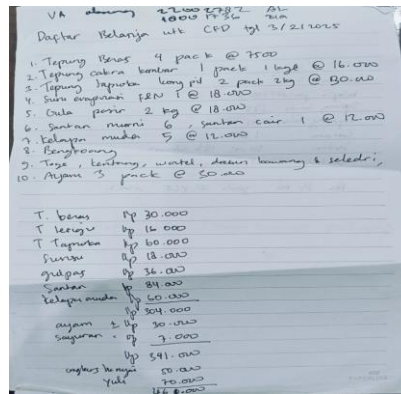 VA
Daftar Belanja utk CFD tgl 3/2/2025
1. Tepung Beras 4 pack @ 7500
2. Tepung cakra kembar 1 pack 1 kg @ 16.000
3. Tepung Tapioka 2 pack 2kg @ 30.000
4. Susu evaporasi F&N 1 @ 18.000
5. Gula pasir 2 kg @ 18.000
6. Santan murni 6, santan cair 1 @ 12.000
7. Kelapa muda 5 @ 12.000
8. Bengkoang
9. Toge, kentang, wortel, daun bawang & seledri,
10. Ayam 3 pack @ 30.000
T. beras Rp 30.000
T terigu Rp 16 000
T Tapioka Rp 60.000
Susu Rp 18.000
gulpas Rp 36.000
Santan Rp 84.000
Kelapa muda Rp 60.000
Rp 304.000
ayam Rp 30.000
sayuran Rp 7.000
Rp 341.000
50.000
Yuli 70.000